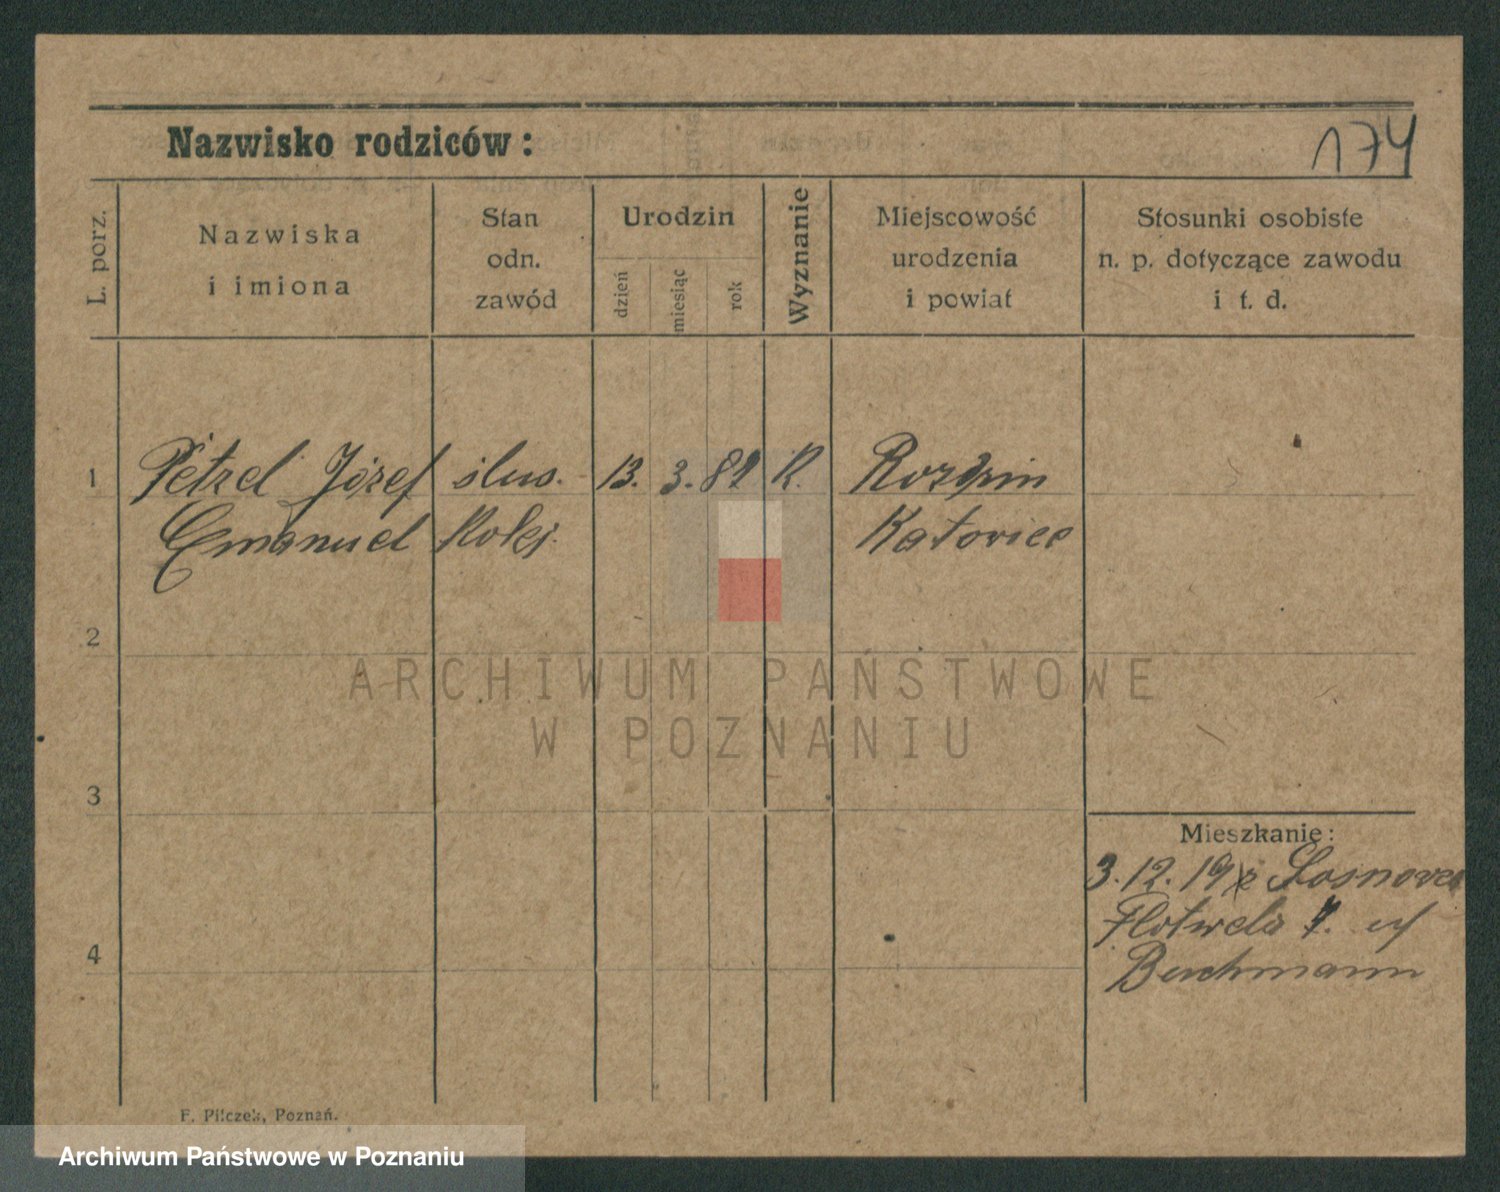 Nazwisko rodziców:
174
L. porz.
Nazwiska
i imiona
Stan
odn.
zawód
Urodzin
dzień
miesiąc
rok
Wyznanie
Miejscowość
urodzenia
i powiat
Stosunki osobiste
n. p. dotyczące zawodu
i t. d.
1
Petzel Józef
ślus.
13.
3.
82
R.
Rozdzin
Emanuel
Kolej.
Katowice
2
ARCHIWUM PAŃSTWOWE
W POZNANIU
3
Mieszkanie:
3. 12. 19
Flotwela 7.
4
Berchmann
F. Pilczek, Poznań.
Archiwum Państwowe w Poznaniu